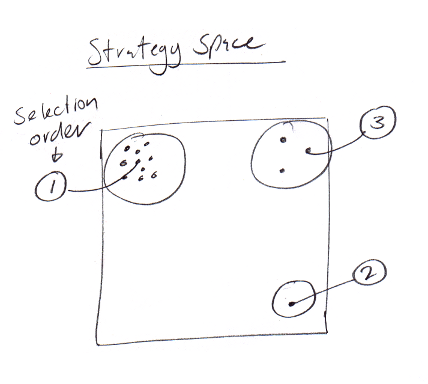 Strategy Space
Selection
order
1
3
2